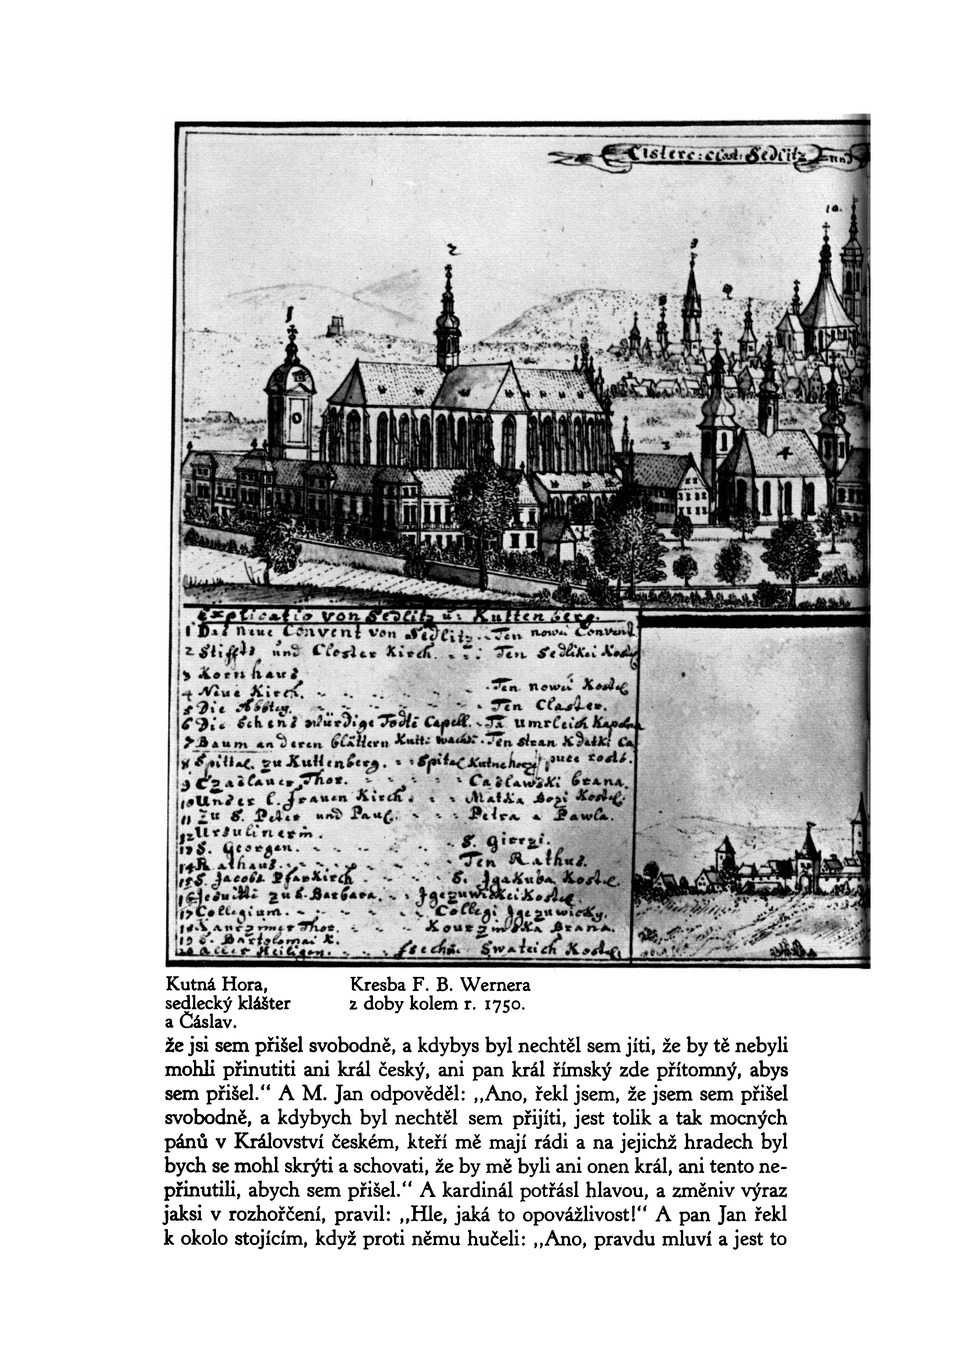 Cisterc: Clost: Sedlitz und
10.
2
9
1
3
4
Explicatio von Sedlitz u: Kuttenberg.
1 Das Neue Convent von Sedlitz. Ten nowei Convend
2 Stiffts und Closter Kirch. Ten Sedlikei Kostel
3 Kornhaus
4 Neue Kirch. Ten nowei Kostel
5 Die Abbtey. Ten Claster.
6 Die Sehens würdige Todte Capell. Ta umrleich Kapelna
7 Baum an deren Blättern Kutt: wachst. Ten stran
8 Spittal zu Kuttenberg. Spital Kutnehorze
9 Czaslauer Thor. Czaslawski brana.
10 Unser l. Frauen Kirch. Matka Bozi Kostel.
11 Zu S. Peter und Paul. Petra a Pawla.
12 Ursulinerin.
13 S. Georgen. S. Gierzi.
14 Rathaus. Ten Rathus.
15 S. Jacobs Pfarkirch S. Jgakuba Kostel.
16 Jesuitte zu S. Barbara. Jgezuwickei Kostel
17 Collegium. Collegi Jgezuwicky.
18 Kaurzimer Thor. Kourzimska Brana.
19 S. Bartolomai K.
20 Aller Heiligen. fsechn Swateich Kostel
Kutná Hora,
sedlecký klášter
a Čáslav.
Kresba F. B. Wernera
z doby kolem r. 1750.
že jsi sem přišel svobodně, a kdybys byl nechtěl sem jíti, že by tě nebyli
mohli přinutiti ani král český, ani pan král římský zde přítomný, abys
sem přišel.“ A M. Jan odpověděl: „Ano, řekl jsem, že jsem sem přišel
svobodně, a kdybych byl nechtěl sem přijíti, jest tolik a tak mocných
pánů v Království českém, kteří mě mají rádi a na jejichž hradech byl
bych se mohl skrýti a schovati, že by mě byli ani onen král, ani tento ne-
přinutili, abych sem přišel.“ A kardinál potřásl hlavou, a změniv výraz
jaksi v rozhořčení, pravil: „Hle, jaká to opovážlivost!“ A pan Jan řekl
k okolo stojícím, když proti němu hučeli: „Ano, pravdu mluví a jest to